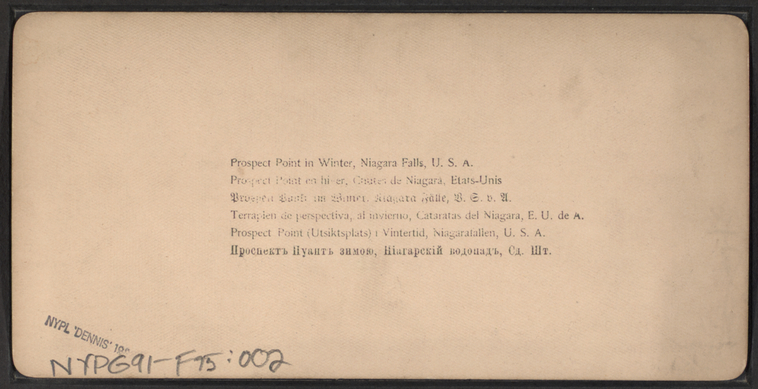 Prospect Point in Winter, Niagara Falls, U. S. A.
Prospect Point en hiver, Chutes de Niagara, Etats-Unis
Prospect Point im Winter, Niagara Fälle, V. S. v. A.
Terraplen de perspectiva, al invierno, Cataratas del Niagara, E. U. de A.
Prospect Point (Utsiktsplats) i Vintertid, Niagarafallen, U. S. A.
Проспектъ Пуантъ зимою, Ніагарскій водопадъ, Сд. Шт.
NYPL 'DENNIS'
NYPG91-F75:002